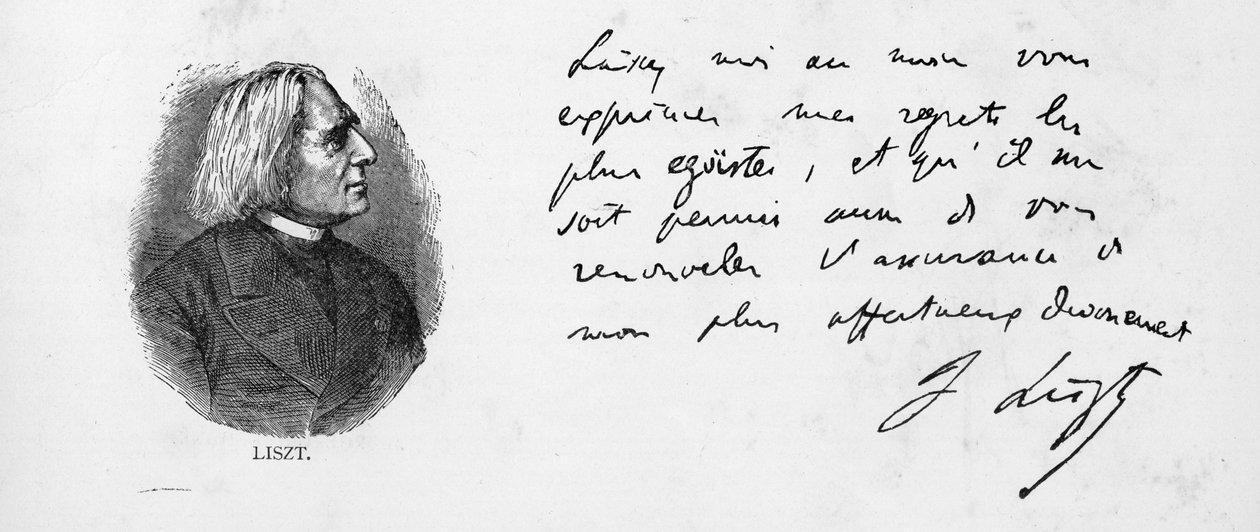 LISZT.
Laissez moi au moins vous
exprimer mes regrets les
plus egoïstes, et qu'il me
soit permis aussi de vous
renouveler l'assurance de
mon plus affectueux devouement
F Liszt